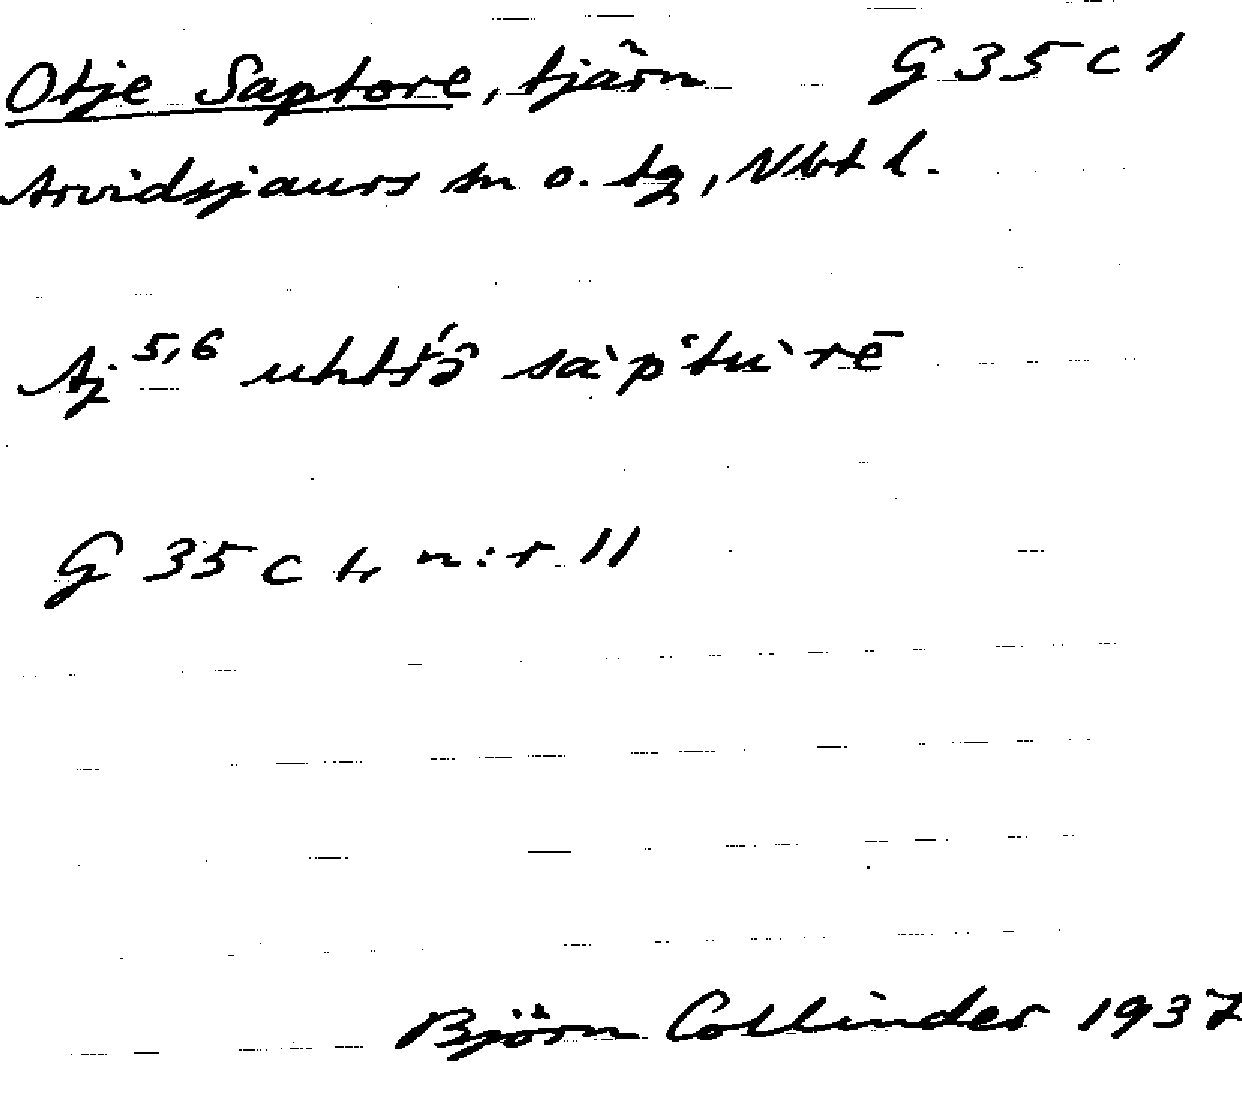 Otje Saptore, tjärn G 35 c 1
Arvidsjaurs sn o. tg, Nbt l.
Aj 5,6
G 35 c tr n:r 11
Björn Collinder 1937